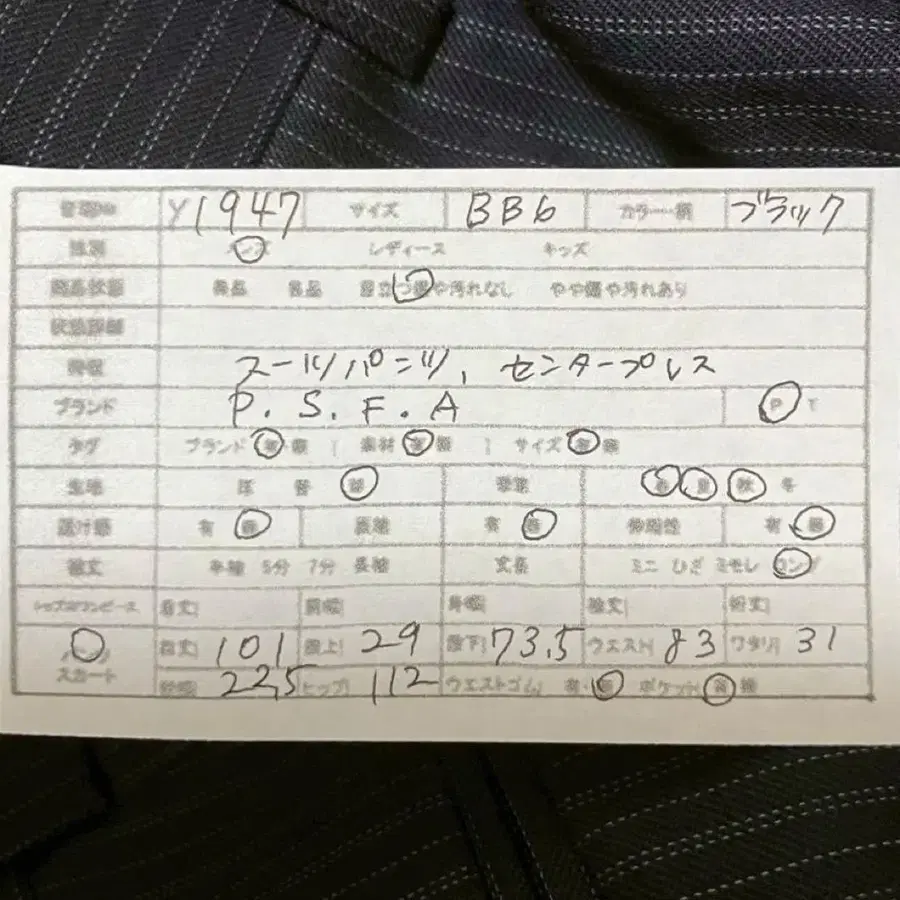 管理No Y1947 サイズ BB6 カラー・柄 ブラック
性別 メンズ レディース キッズ
商品状態 美品 良品 目立つ傷や汚れなし やや傷や汚れあり
状態詳細
特徴 スーツパンツ、センタープレス
ブランド P.S.F.A P T
タグ ブランド 有 無 | 素材 有 無 | サイズ 有 無
生地 厚 普 薄 季節 春 夏 秋 冬
透け感 有 無 裏地 有 無 伸縮性 有 無
袖丈 半袖 5分 7分 長袖 丈長 ミニ ひざ ミモレ ロング
トップス/ワンピース 着丈| 肩幅| 身幅| 袖丈| 裄丈|
パンツ 総丈| 101 股上| 29 股下| 73.5 ウエスト| 83 ワタリ| 31
スカート 裾幅| 22,5 ヒップ| 112 ウエストゴム| 有・無 ポケット| 有 無